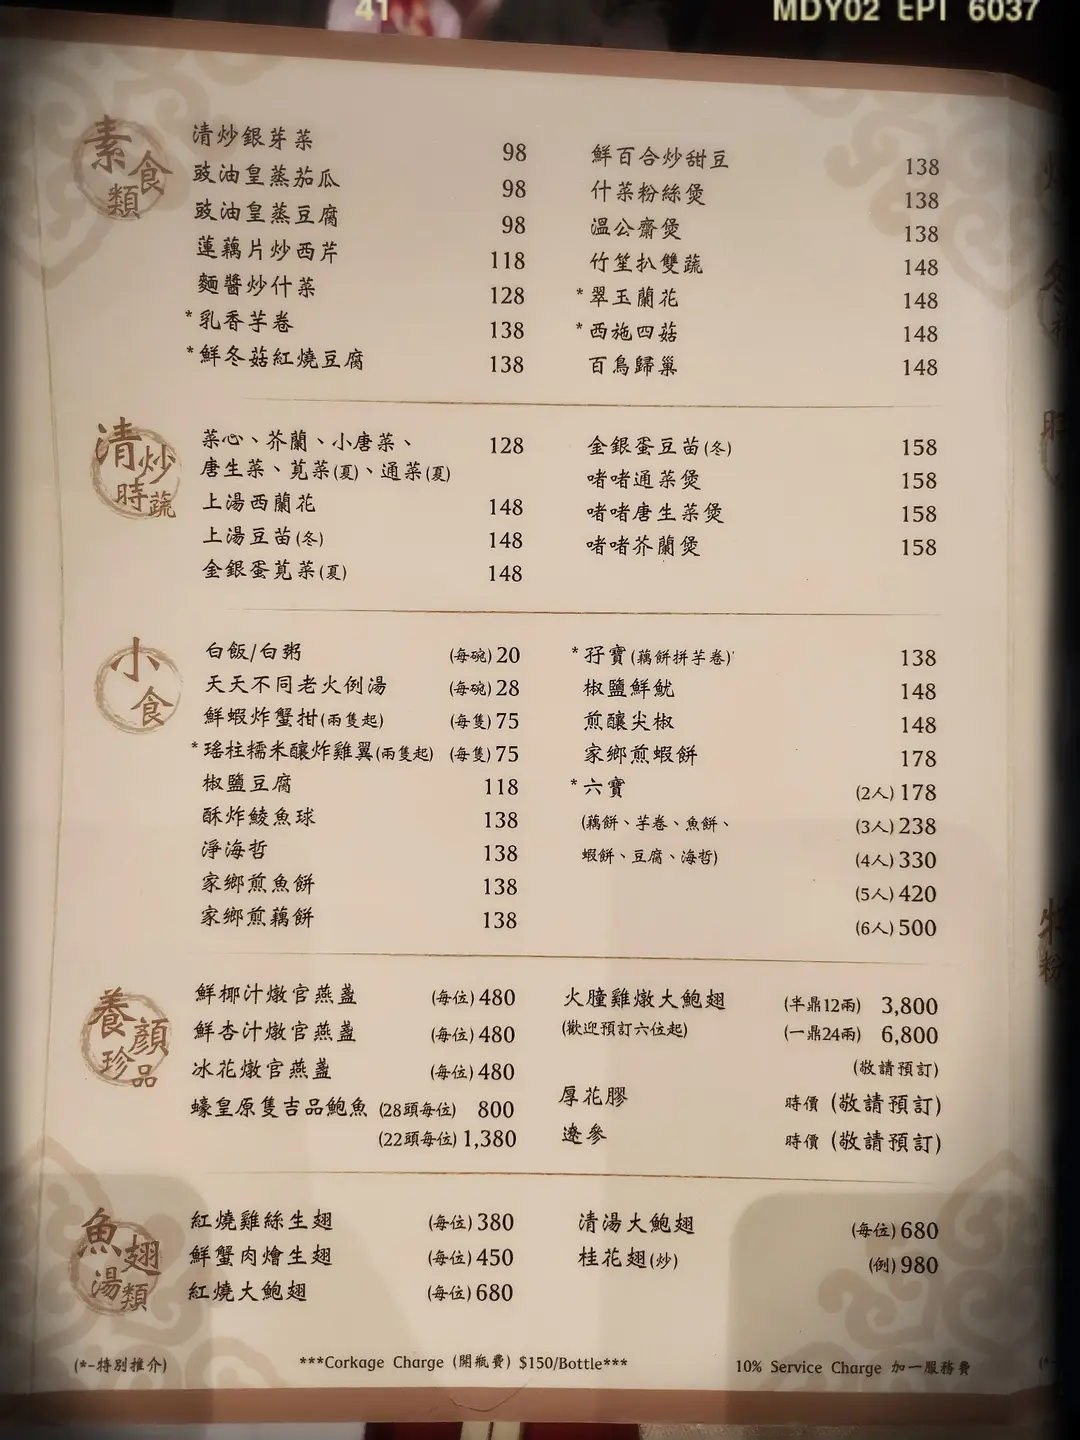 41
MDY02 EPI 6037
素食類
清炒銀芽菜 98
豉油皇蒸茄瓜 98
豉油皇蒸豆腐 98
蓮藕片炒西芹 118
麵醬炒什菜 128
*乳香芋卷 138
*鮮冬菇紅燒豆腐 138
鮮百合炒甜豆 138
什菜粉絲煲 138
溫公齋煲 138
竹笙扒雙蔬 148
*翠玉蘭花 148
*西施四菇 148
百鳥歸巢 148
清炒時蔬
菜心、芥蘭、小唐菜、 128
唐生菜、莧菜(夏)、通菜(夏)
上湯西蘭花 148
上湯豆苗(冬) 148
金銀蛋莧菜(夏) 148
金銀蛋豆苗(冬) 158
啫啫通菜煲 158
啫啫唐生菜煲 158
啫啫芥蘭煲 158
小食
白飯/白粥 (每碗) 20
天天不同老火例湯 (每碗) 28
鮮蝦炸蟹拑(兩隻起) (每隻) 75
*瑤柱糯米釀炸雞翼(兩隻起) (每隻) 75
椒鹽豆腐 118
酥炸鯪魚球 138
淨海哲 138
家鄉煎魚餅 138
家鄉煎藕餅 138
*孖寶(藕餅拼芋卷) 138
椒鹽鮮魷 148
煎釀尖椒 148
家鄉煎蝦餅 178
*六寶 (2人) 178
(藕餅、芋卷、魚餅、 (3人) 238
蝦餅、豆腐、海哲) (4人) 330
(5人) 420
(6人) 500
養顏珍品
鮮椰汁燉官燕盞 (每位) 480
鮮杏汁燉官燕盞 (每位) 480
冰花燉官燕盞 (每位) 480
蠔皇原隻吉品鮑魚 (28頭每位) 800
(22頭每位) 1,380
火朣雞燉大鮑翅 (半鼎12兩) 3,800
(歡迎預訂六位起) (一鼎24兩) 6,800
(敬請預訂)
厚花膠 時價 (敬請預訂)
遼參 時價 (敬請預訂)
魚翅湯類
紅燒雞絲生翅 (每位) 380
鮮蟹肉燴生翅 (每位) 450
紅燒大鮑翅 (每位) 680
清湯大鮑翅 (每位) 680
桂花翅(炒) (例) 980
(*-特別推介)
***Corkage Charge (開瓶費) $150/Bottle***
10% Service Charge 加一服務費